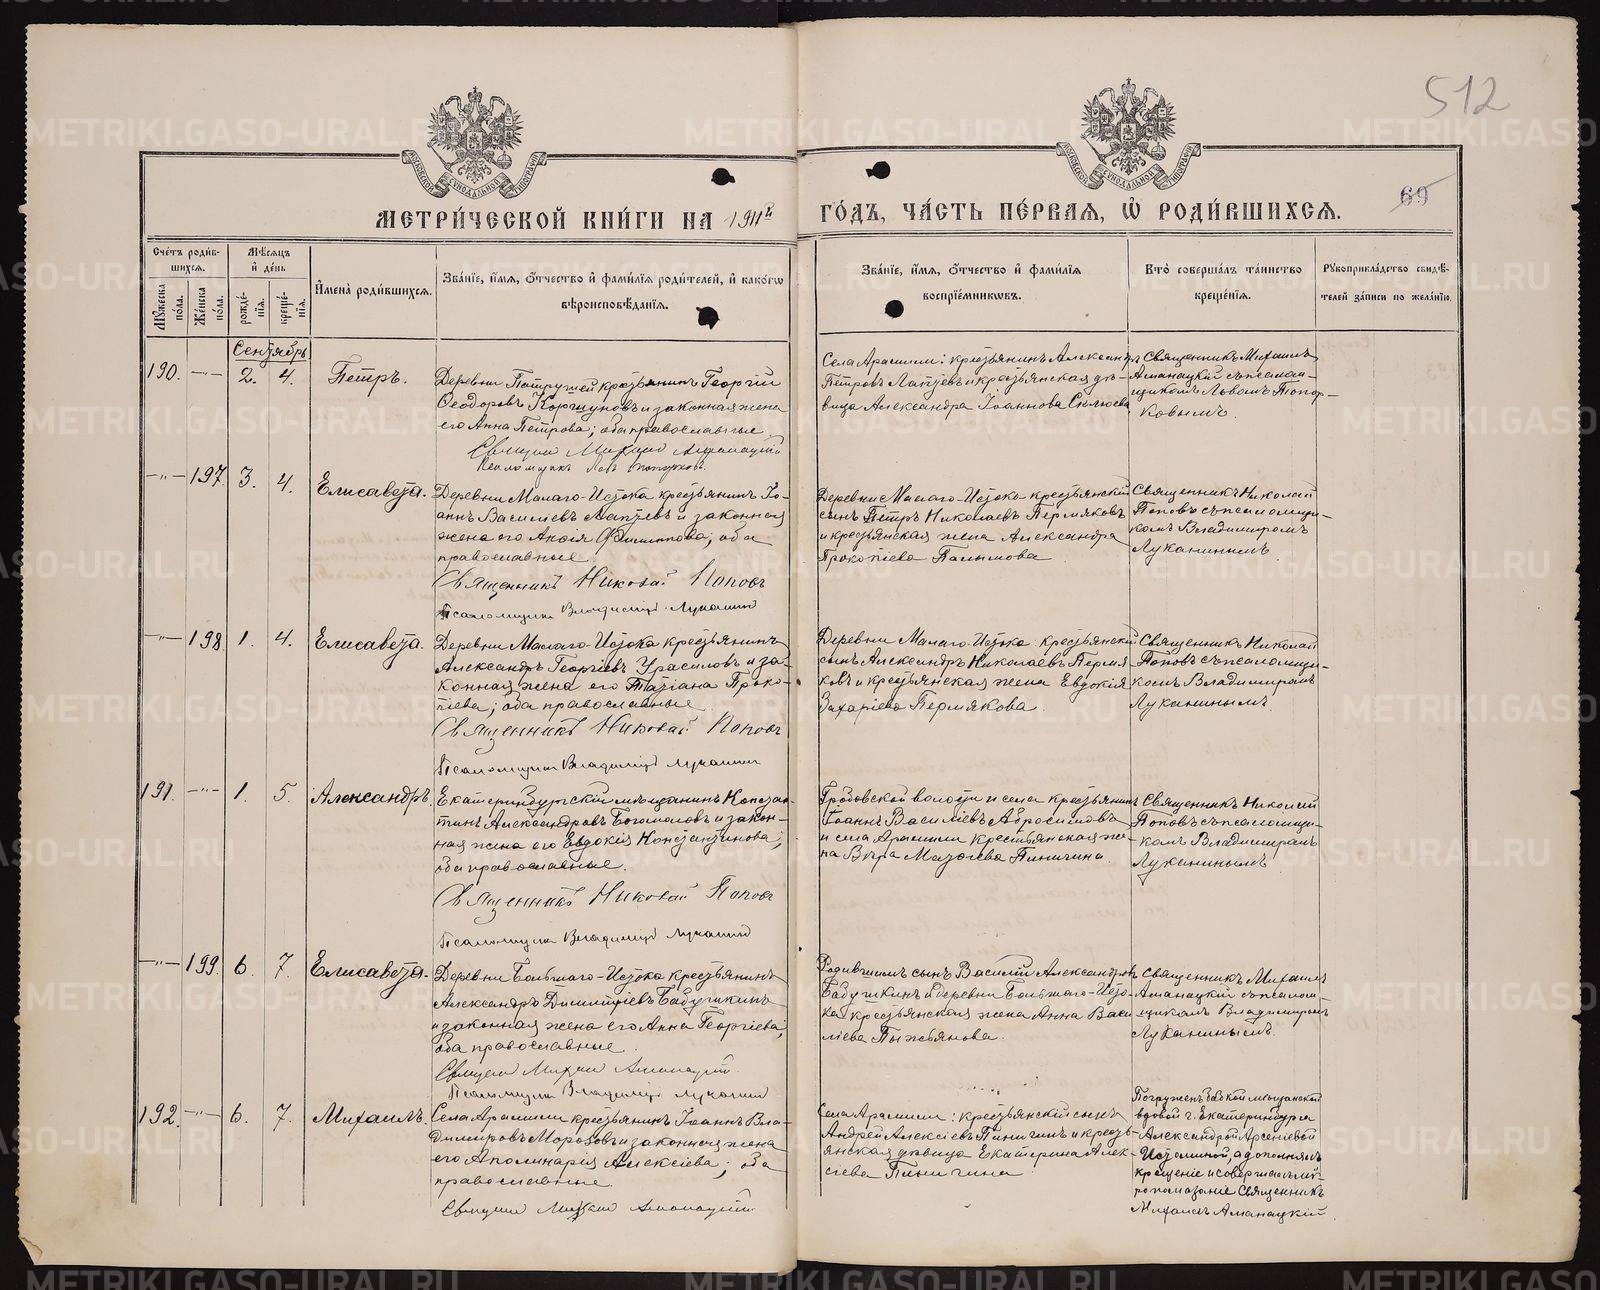 512
69
МЕТРИ́ЧЕСКОЙ КНИ́ГИ НА 1911й ГО́ДЪ, ЧА́СТЬ ПЕ́РВАЯ, Ѿ РОДИ́ВШИХСЯ.
Сче́тъ роди́вшихся.
Му́жеска по́ла.
Же́нска по́ла.
Мѣ́сяцъ и҆ де́нь
рожде́нїя.
креще́нїя.
И҆мена̀ роди́вшихся.
Зва́нїе, и҆́мя, ѻ҆́тчество и҆ фами́лїя роди́телей, и҆ како́гѡ вѣроисповѣ́данїя.
Зва́нїе, и҆́мя, ѻ҆́тчество и҆ фами́лїя воспрїе́мниковъ.
Кто̀ соверша́лъ та́инство креще́нїя.
Рукоприкла́дство свидѣ́телей за́писи по жела́нїю.
Сентябрь
190. —"— 2. 4.
Петръ.
Деревни Патрушей крестьянинъ Георгій
Ѳеодоровъ Коршуновъ и законная жена
его Анна Петрова; оба православные
Священ Михаил Аманацкій
Псаломщикъ Левъ Топорковъ.
Села Арамили: крестьянинъ Александръ
Петровъ Лаптевъ и крестьянская дѣ-
вица Александра Іоаннова
Священникъ Михаилъ
Аманацкій съ псалом-
щикомъ Львомъ Топор-
ковымъ.
—"— 197. 3. 4.
Елисавета.
Деревни Малаго-Истока крестьянинъ Іо-
аннъ Василіевъ Лаптевъ и законная
жена его Анѳія Филиппова; оба
православные
Священникъ Николай Поповъ
Псаломщикъ Владиміръ Луканинъ
Деревни Малаго-Истока крестьянскій
сынъ Петръ Николаевъ Пермяковъ
и крестьянская жена Александра
Прокопіева Палымова
Священникъ Николай
Поповъ съ псаломщи-
комъ Владимиромъ
Луканинымъ.
—"— 198. 1. 4.
Елисавета.
Деревни Малаго-Истока крестьянинъ
Александръ Георгіевъ Урасиловъ и за-
конная жена его Татіана Проко-
піева; оба православные
Священникъ Николай Поповъ
Псаломщикъ Владиміръ Луканинъ
Деревни Малаго-Истока крестьянскій
сынъ Александръ Николаевъ Пермя-
ковъ и крестьянская жена Евдокія
Захаріева Пермякова.
Священникъ Николай
Поповъ съ псаломщи-
комъ Владимиромъ
Луканинымъ.
191. —"— 1. 5.
Александръ.
Екатеринбургскій мѣщанинъ Констан-
тинъ Александровъ Богомоловъ и закон-
ная жена его Евдокія Константинова;
оба православные.
Священникъ Николай Поповъ
Псаломщикъ Владиміръ Луканинъ
Гробовской волости и села крестьянинъ
Іоаннъ Василіевъ Абросимовъ
и села Арамили крестьянская же-
на Вѣра Пинигина
Священникъ Николай
Поповъ съ псаломщи-
комъ Владимиромъ
Луканинымъ
—"— 199. 6. 7.
Елисавета.
Деревни Большаго-Истока крестьянинъ
Александръ Димитріевъ Бабушкинъ
и законная жена его Анна Георгіева;
оба православные.
Священ Михаил Аманацкій
Псаломщикъ Владиміръ Луканинъ
сынъ Василій Александровъ
Бабушкинъ и деревни Большаго-Исто-
ка крестьянская жена Анна Васи-
ліева Пыжьянова.
Священникъ Михаилъ
Аманацкій съ псалом-
щикомъ Владимиромъ
Луканинымъ
192. —"— 6. 7.
Михаилъ.
Села Арамили крестьянинъ Іоаннъ Вла-
димировъ Морозовъ и законная жена
его Аполинарія Алексіева; оба
православные
Священ Михаил Аманацкій
Села Арамили: крестьянскій сынъ
Андрей Алексіевъ Пинигинъ и кресть-
янская дѣвица Екатерина Алек-
сіева Пинигина
Погруженъ бабкой мѣщанской
вдовой г. Екатеринбурга
Александрой Арсеніевой
Истоминой, а дополнялъ
крещеніе и совершилъ мѵ-
ропомазаніе Священникъ
Михаилъ Аманацкій.
METRIKI.GASO-URAL.RU